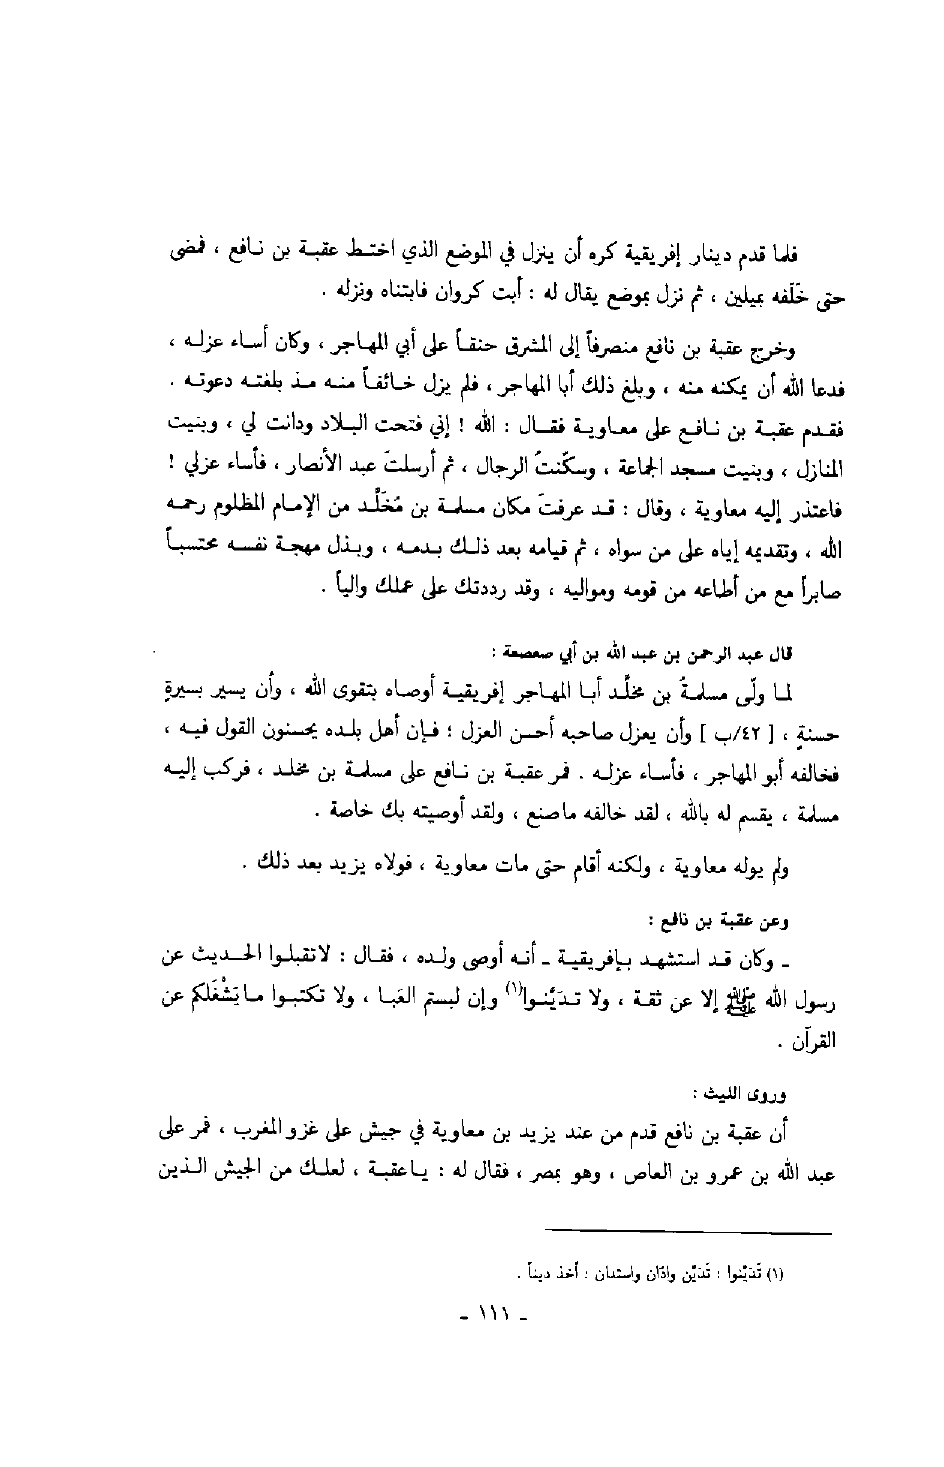 فلما قدم دينار إفريقية كره أن ينزل في الموضع الذي اختط عقبة بن نافع ، فمضى
حتى خلّفه بميلين ، ثم نزل بموضع يقال له : أبت كروان فابتناه ونزله .
وخرج عقبة بن نافع منصرفاً إلى المشرق حنقاً على أبي المهاجر ، وكان أساء عزله ،
فدعا الله أن يمكنه منه ، وبلغ ذلك أبا المهاجر ، فلم يزل خائفاً منه مذ بلغته دعوته .
فقدم عقبة بن نافع على معاوية فقال : الله ! إني فتحت البلاد ودانت لي ، وبنيت
المنازل ، وبنيت مسجد الجماعة ، وسكّنتُ الرجال ، ثم أرسلتَ عبد الأنصار ، فأساء عزلي !
فاعتذر إليه معاوية ، وقال : قد عرفتَ مكان مسلمة بن مُخَلَّد من الإمام المظلوم رحمه
الله ، وتقديمه إياه على من سواه ، ثم قيامه بعد ذلك بدمه ، وبذل مهجة نفسه محتسباً
صابراً مع من أطاعه من قومه ومواليه ، وقد رددتك على عملك والياً .
قال عبد الرحمن بن عبد الله بن أبي صعصعة :
لما ولّى مسلمةُ بن مخلَّد أبا المهاجر إفريقية أوصاه بتقوى الله ، وأن يسير بسيرةٍ
حسنةٍ ، [ ٤٢/ب ] وأن يعزل صاحبه أحسن العزل ؛ فإن أهل بلده يحسنون القول فيه ،
فخالفه أبو المهاجر ، فأساء عزله . فمر عقبة بن نافع على مسلمة بن مخلد ، فركب إليه
مسلمة ، يقسم له بالله ، لقد خالفه ماصنع ، ولقد أوصيته بك خاصة .
ولم يوله معاوية ، ولكنه أقام حتى مات معاوية ، فولاه يزيد بعد ذلك .
وعن عقبة بن نافع :
ـ وكان قد استشهد بإفريقية ـ أنه أوصى ولده ، فقال : لاتقبلوا الحديث عن
رسول الله ﷺ إلا عن ثقة ، ولا تدَيَّنوا(١) وإن لبستم العَبا ، ولا تكتبوا مايَشْغَلكم عن
القرآن .
وروى الليث :
أن عقبة بن نافع قدم من عند يزيد بن معاوية في جيش على غزو المغرب ، فمر على
عبد الله بن عمرو بن العاص ، وهو بمصر ، فقال له : ياعقبة ، لعلك من الجيش الذين
(١) تَدَيَّنوا : تَدَيَّن وادّان واستدان : أخذ ديناً .
ـ ١١١ ـ